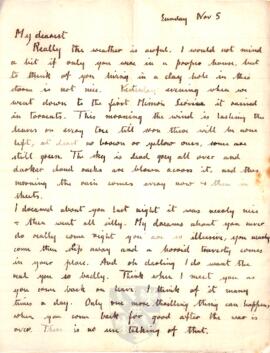 Sunday Nov 5
My dearest
Really this weather is awful. I would not mind
a bit if only you were in a proper house, but
to think of you living in a clay hole in this
storm is not nice. Yesterday evening when we
went down to the first Mission Service it rained
in torrents. This morning the wind is lashing the
leaves on every tree till soon there will be none
left, at least no brown or yellow ones, some are
still green. The sky is dead grey all over and
darker cloud racks are blown across it, and this
morning the rain comes every now & then in
sheets.
I dreamed about you last night it was nearly nice
& then went all silly. My dreams about you never
do really come right you are so illusive, you nearly
come then slip away and a horrid travesty comes
in your place. And oh darling I do want the
real you so badly. Think when I meet you as
you come back on leave, I think of it many
times a day. Only one more thrilling thing can happen,
when you come back for good after the war is
over. There is no use talking of that.